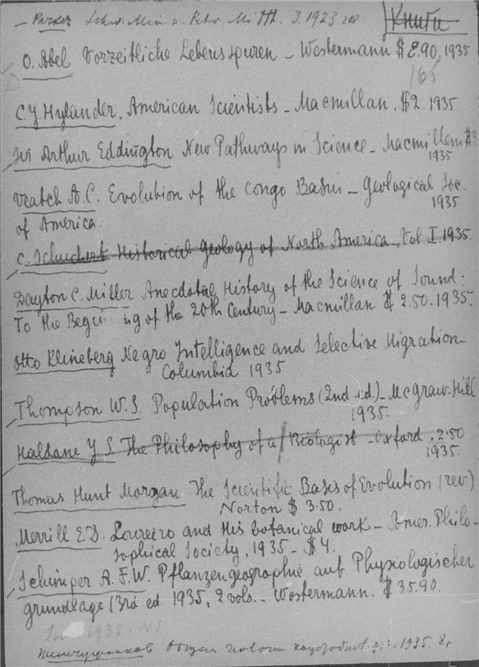 Книги
Min. u. Petr. Mitt. 3. 1923
O. Abel Vorzeitliche Lebensspuren – Westermann $ 8.90, 1935
165
C.J. Hylander. American Scientists – Macmillan. $2. 1935
Sir Arthur Eddington New Pathways in Science – Macmillan $3
1935
Veatch A.C. Evolution of the Congo Basin – Geological Soc.
1935
of America.
C. Schuchert Historical Geology of North America – Vol I. 1935
Dayton C. Miller Anecdotal History of the Science of Sound:
To the Begin ing of the 20th Century – Macmillan $ 2.50. 1935.
Otto Klineberg Negro Intelligence and Selective Migration –
Columbia 1935
Thompson W.S. Population Problems (2nd ed.) – McGraw-Hill
1935.
Haldane J S The Philosophy of a Biologist – Oxford . 2.50
1935.
Thomas Hunt Morgan The Scientific Bases of Evolution (rev)
Norton $ 3.50.
Merrill E.D. Loureiro and His botanical work – Amer. Philo-
sophical Society, 1935 – $4.
Schimper A.F.W. Pflanzengeographie auf Physiologischer
grundlage (3rd ed 1935, 2 vols. – Westermann. $ 35.90.
1935 N1
1935. 8